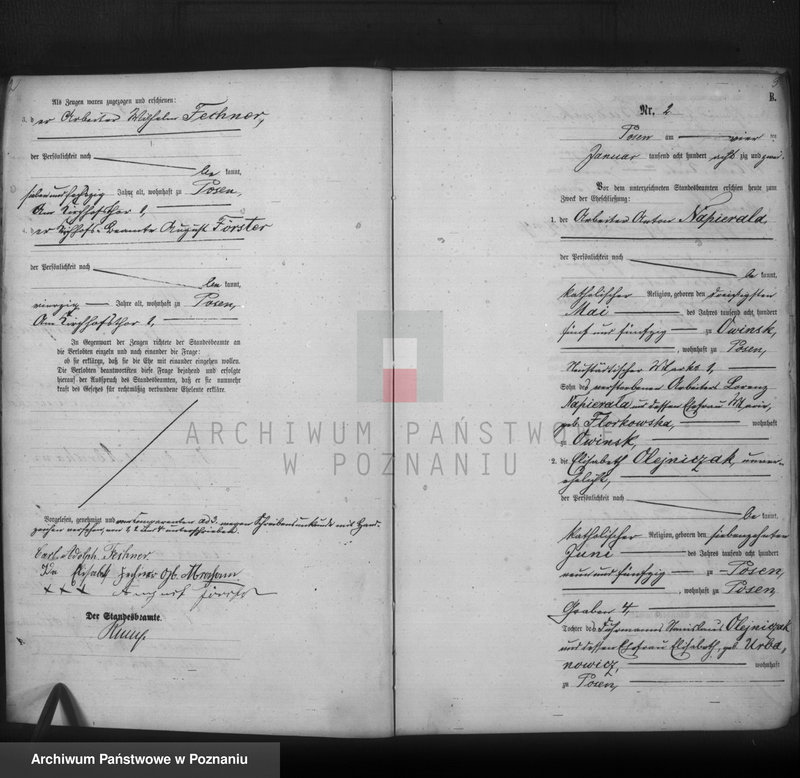 Als Zeugen waren zugezogen und erschienen:
3. der Arbeiter Wilhelm Fechner,
der Persönlichkeit nach
be kannt,
sieben und sechszig Jahre alt, wohnhaft zu Posen,
Am Kirchhofsthor 1,
4. der Kirchhofs-Beamte August Förster
der Persönlichkeit nach
be kannt,
vierzig Jahre alt, wohnhaft zu Posen,
Am Kirchhofsthor 1,
In Gegenwart der Zeugen richtete der Standesbeamte an
die Verlobten einzeln und nach einander die Frage:
ob sie erklären, daß sie die Ehe mit einander eingehen wollen.
Die Verlobten beantworteten diese Frage bejahend und erfolgte
hierauf der Ausspruch des Standesbeamten, daß er sie nunmehr
kraft des Gesetzes für rechtmäßig verbundene Eheleute erkläre.
Vorgelesen, genehmigt und von Comparenten ad 3 wegen Schreibensunkunde mit Hand-
zeichen versehen, von 1, 2 und 4 unterschrieben.
Carl Adolph Fechner
Ida Elisabet Fechner geb.
+ + + August Förster
Der Standesbeamte.
B.
Nr. 2
Posen am vier ten
Januar tausend acht hundert acht zig und zwei
Vor dem unterzeichneten Standesbeamten erschien heute zum
Zweck der Eheschließung:
1. der Arbeiter Anton Napierala
der Persönlichkeit nach
be kannt,
katholischer Religion, geboren den dreißigsten
Mai des Jahres tausend acht hundert
fünf und fünfzig zu Owinsk,
, wohnhaft zu Posen,
Neustädtischer Markt 1,
Sohn des verstorbenen Arbeiters Lorenz
Napierala und dessen Ehefrau Marie,
geb. Florkowska, wohnhaft
zu Owinsk,
2. die Elisabeth Olejniczak, unver-
ehelicht,
der Persönlichkeit nach
be kannt,
katholischer Religion, geboren den siebenzehnten
Juni des Jahres tausend acht hundert
neun und fünfzig zu Posen,
, wohnhaft zu Posen,
Graben 4,
Tochter des Fuhrmanns Stanislaus Olejniczak
und dessen Ehefrau Elisabeth, geb. Urba-
nowicz, wohnhaft
zu Posen,
ARCHIWUM PAŃSTWOWE
W POZNANIU
Archiwum Państwowe w Poznaniu